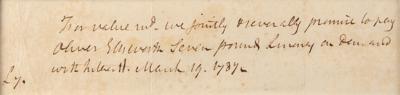 For value recd. we jointly & severally promise to pay
Oliver Ellsworth Seven pounds L. money on Demand
with Int. March 19. 1787
£7.